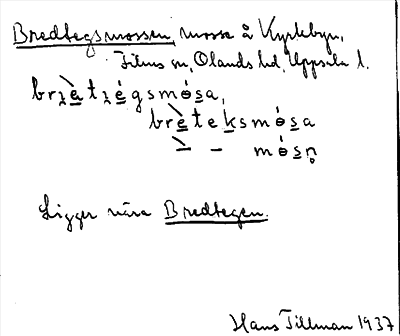 Bredtegsmossen, mosse å Kyrkbyn,
Films sn, Olands hd, Uppsala l.
brètégsmósa,
brèteksmósa
– – mósn̥
Ligger nära Bredtegen.
Hans Tillman 1937